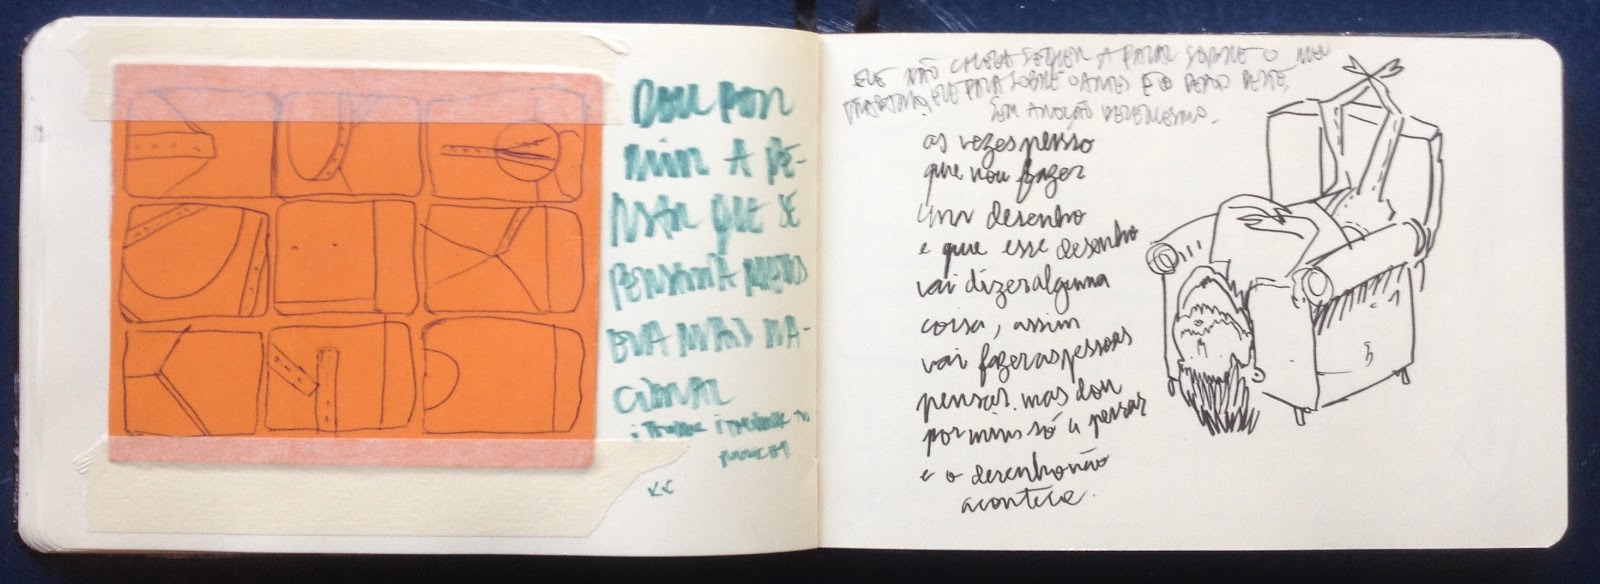 DOU POR
MIM A PE-
NSAR QUE SE
PENSAVA MENOS
ERA MAIS NA-
CIONAL
ELE NÃO CHEGA SEQUER A FALAR SOBRE O MEU
TRABALHO, ELE FALA SOBRE O ANTES E O DEPOIS DESTE,
SEM A NOÇÃO DO MESMO.
as vezes penso
que vou fazer
um desenho
e que esse desenho
vai dizer alguma
coisa, assim
vai fazer as pessoas
pensar. mas dou
por mim só a pensar
e o desenho não
acontece.